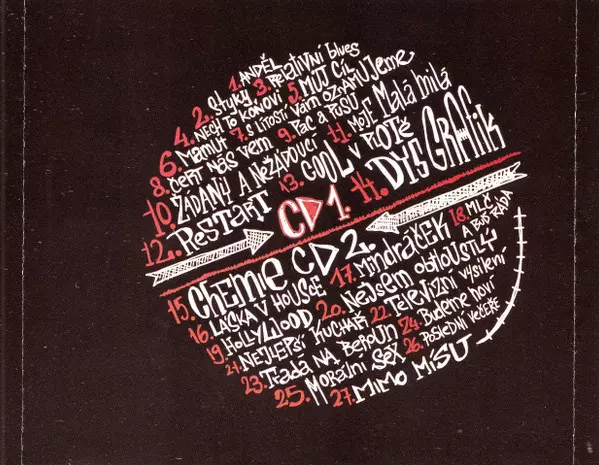 1. ANDĚL
2. Styky 3. Relativní blues
4. NECH TO KOŇOVI 5. MŮJ CÍL
6. Mamut 7. S LÍTOSTÍ VÁM OZNAMUJeme
8. ČERT NÁS VEM 9. PAČ A PÍŠU
10. ŽÁDANÝ A NEŽÁDOUCÍ 11. MOJE Malá milá
12. ReSTART 13. COOL V PLOTĚ
CD 1. 14. DYSGRAFIK
15. CHEMIE CD 2.
16. LÁSKA V HOUSCE 17. Mindráček 18. MLČ A BUĎ RÁDA
19. HOLLYWOOD 20. Nejsem obłoustlý
21. NEJLEPŠÍ KUCHAŘ 22. Televizní vysílení
23. Tradá NA BEROUN 24. Budeme noví
25. Morální Sex 26. POSLEDNÍ VEČEŘE
27. MIMO MÍSU